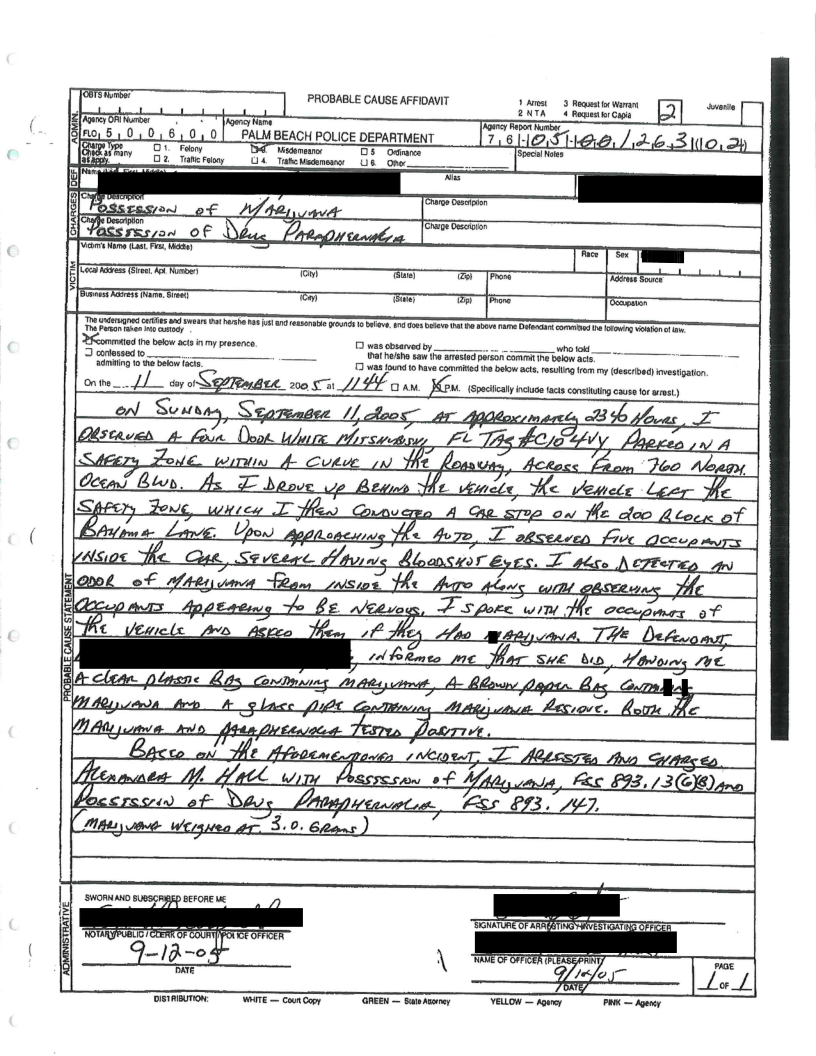 OBTS Number
PROBABLE CAUSE AFFIDAVIT
1 Arrest 3 Request for Warrant
2 N T A 4 Request for Capia
2
Juvenile
ADMIN.
Agency ORI Number
FLO, 5, 0, 0, 6, 0, 0
Agency Name
PALM BEACH POLICE DEPARTMENT
Agency Report Number
7, 6 -
Charge Type
Check as many
as apply.
1. Felony
2. Traffic Felony
Misdemeanor
4. Traffic Misdemeanor
5 Ordinance
6. Other
Special Notes
DEF
Alias
CHARGES
Charge Description
POSSESSION of MARIJUANA
Charge Description
Charge Description
POSSESSION OF DRUG PARAPHERNALIA
Charge Description
VICTIM
Victim's Name (Last, First, Middle)
Race
Sex
Local Address (Street, Apt. Number)
(City)
(State)
(Zip)
Phone
Address Source
Business Address (Name, Street)
(City)
(State)
(Zip)
Phone
Occupation
The undersigned certifies and swears that he/she has just and reasonable grounds to believe, and does believe that the above name Defendant committed the following violation of law.
The Person taken into custody
committed the below acts in my presence.
confessed to
admitting to the below facts.
was observed by who told
that he/she saw the arrested person commit the below acts.
was found to have committed the below acts, resulting from my (described) investigation.
On the 11 day of SEPTEMBER 2005 at 1144 A.M. P.M. (Specifically include facts constituting cause for arrest.)
PROBABLE CAUSE STATEMENT
ON SUNDAY, SEPTEMBER 11, 2005, AT APPROXIMATELY 2340 HOURS, I
OBSERVED A FOUR DOOR WHITE MITSHUBISHI, FL TAG #C104VY PARKED IN A
SAFETY ZONE WITHIN A CURVE IN the ROADWAY, ACROSS FROM 760 NORTH
OCEAN BLVD. AS I DROVE UP BEHIND the VEHICLE, the VEHICLE LEFT the
SAFETY ZONE, WHICH I then CONDUCTED A CAR STOP ON the 200 BLOCK of
BAHAMA LANE. UPON APPROACHING the AUTO, I OBSERVED FIVE OCCUPANTS
INSIDE the CAR, SEVERAL HAVING BLOODSHOT EYES. I ALSO DETECTED AN
ODOR of MARIJUANA FROM INSIDE the AUTO ALONG WITH OBSERVING the
OCCUPANTS APPEARING to BE NERVOUS. I SPOKE WITH the OCCUPANTS of
the VEHICLE AND ASKED them if they HAD MARIJUANA. THE DEFENDANT,
, INFORMED ME that SHE DID, HANDING ME
A CLEAR PLASTIC BAG CONTAINING MARIJUANA, A BROWN PAPER BAG
MARIJUANA AND A glass pipe CONTAINING MARIJUANA RESIDUE. BOTH the
MARIJUANA AND PARAPHERNALIA TESTED POSITIVE.
BASED ON the AFOREMENTIONED INCIDENT, I ARRESTED AND CHARGED
ALEXANDRA M. HALL WITH POSSESSION of MARIJUANA, FSS 893.13(6)(B) AND
POSSESSION of DRUG PARAPHERNALIA, FSS 893.147.
(MARIJUANA WEIGHED AT 3.0. GRAMS)
ADMINISTRATIVE
SWORN AND SUBSCRIBED BEFORE ME
NOTARY/PUBLIC / CLERK OF COURT / POLICE OFFICER
9-12-05
DATE
SIGNATURE OF ARRESTING / INVESTIGATING OFFICER
NAME OF OFFICER (PLEASE PRINT)
9/12/05
DATE
PAGE
1 OF 1
DISTRIBUTION: WHITE — Court Copy GREEN — State Attorney YELLOW — Agency PINK — Agency